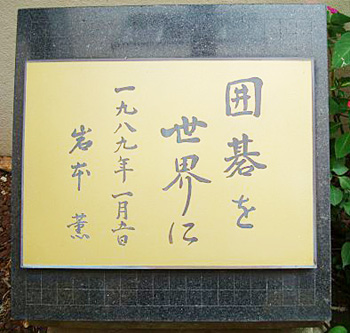 囲碁を
世界に
一九八九年一月五日
岩本薫